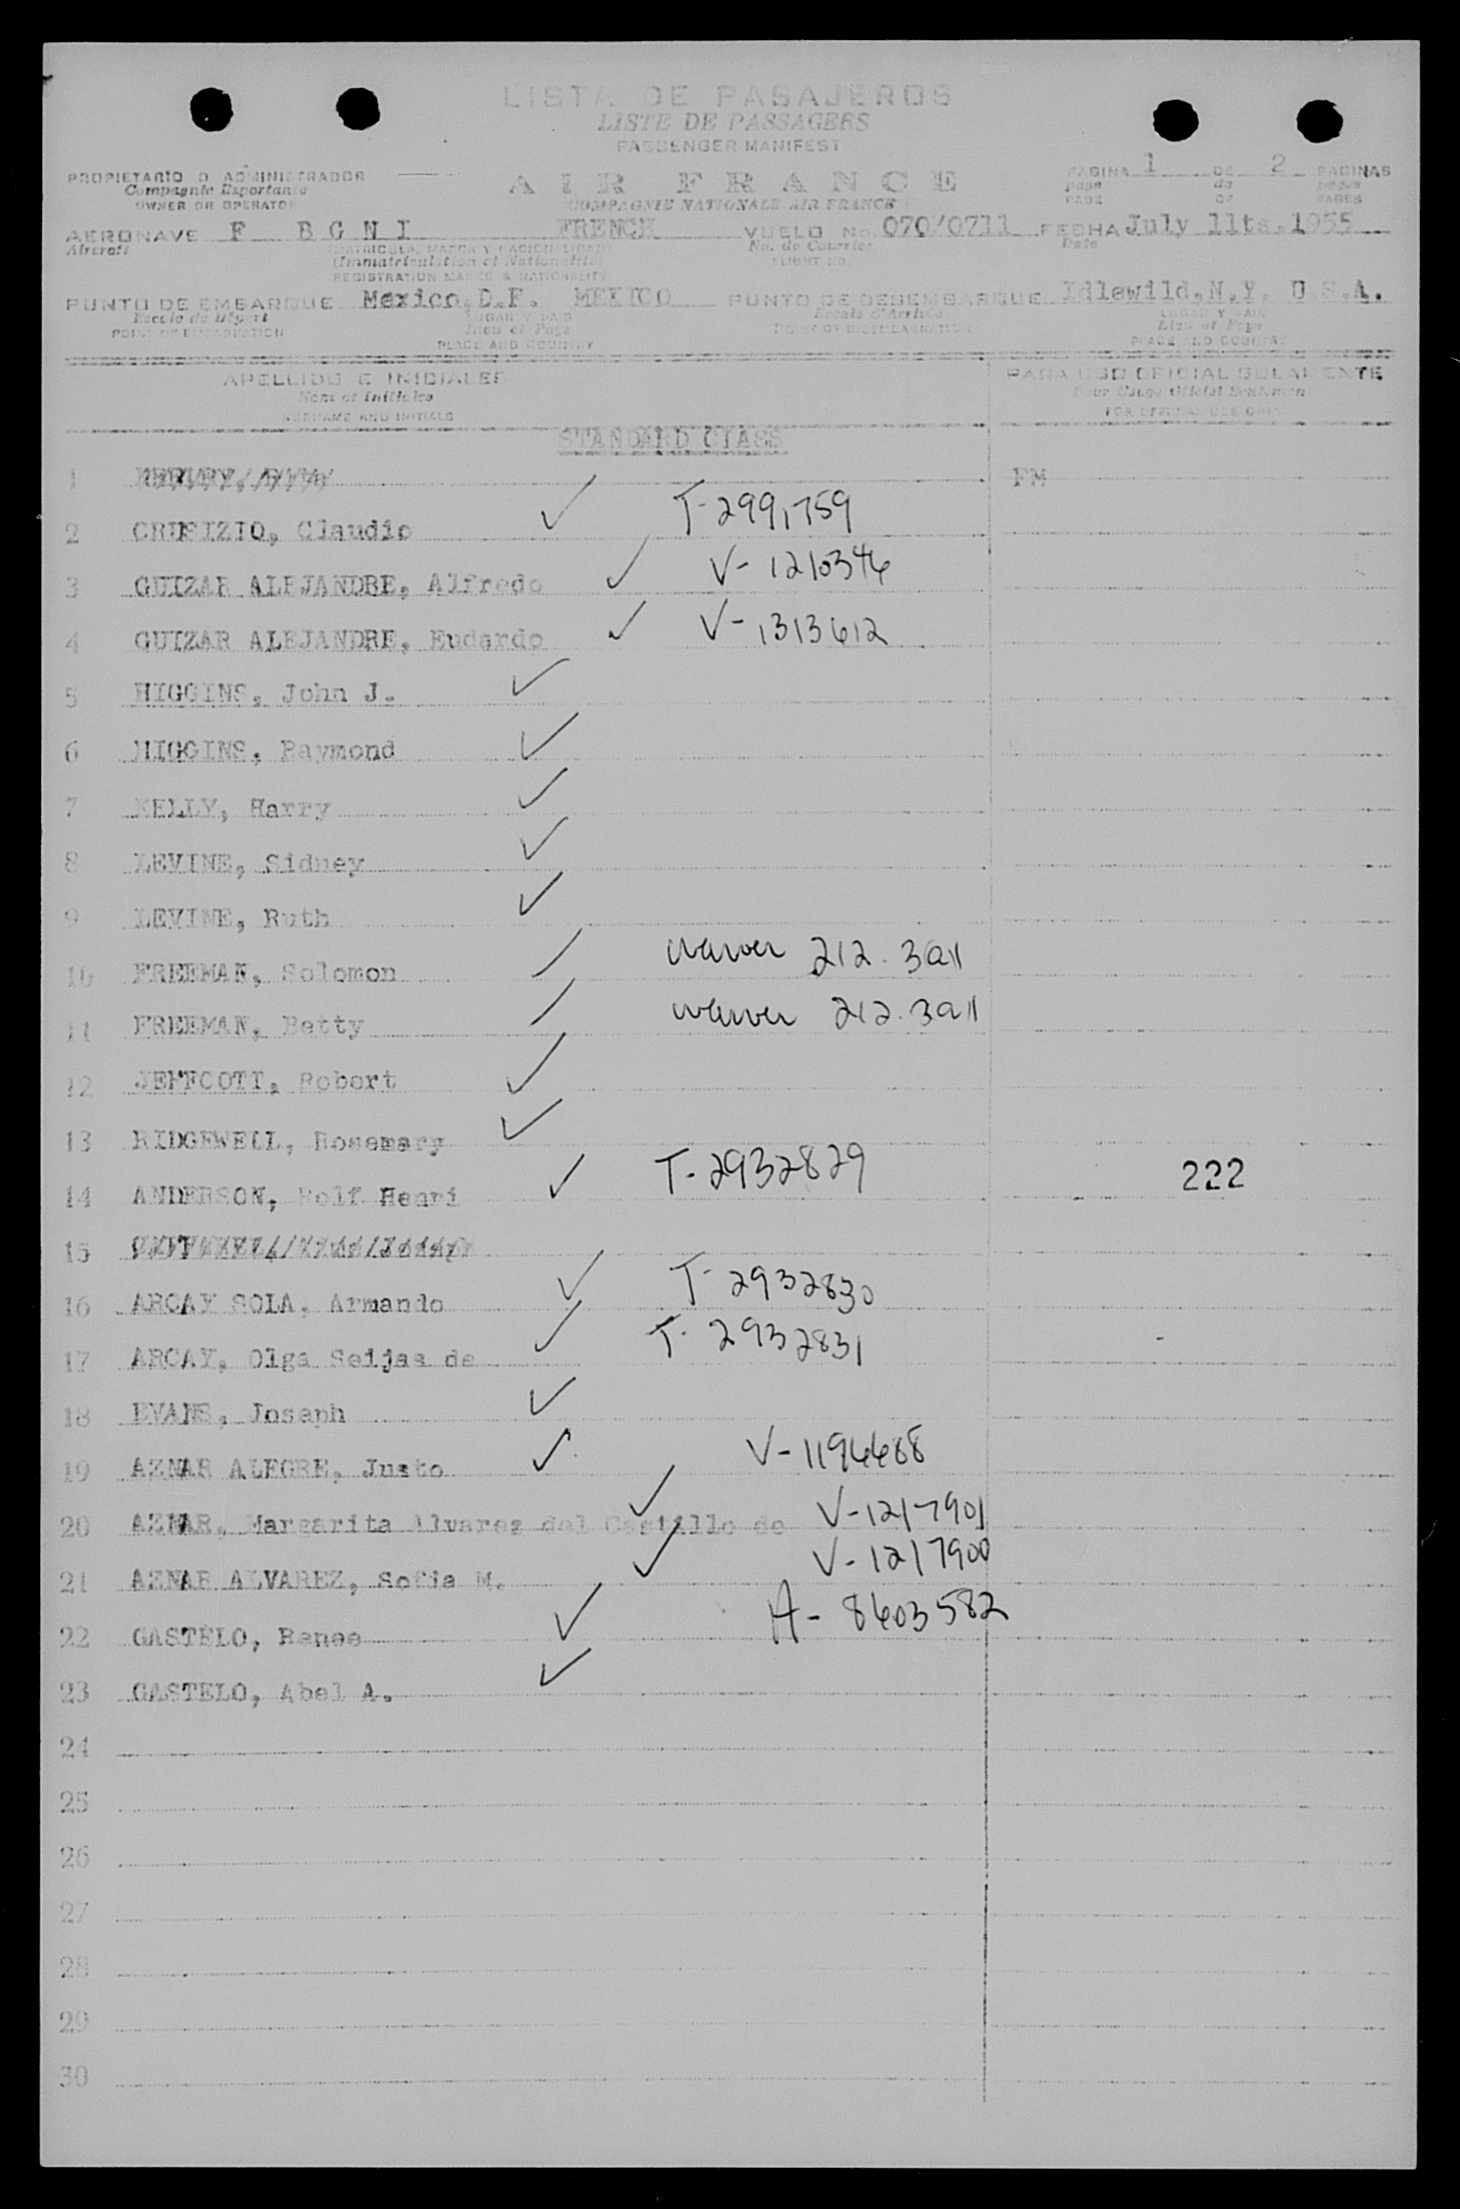 LISTA DE PASAJEROS
LISTE DE PASSAGERS
PASSENGER MANIFEST
PROPIETARIO O ADMINISTRADOR
Compagnie Exportante
OWNER OR OPERATOR
AIR FRANCE
COMPAGNIE NATIONALE AIR FRANCE
PAGINA 1 DE 2 PAGINAS
page de pages
PAGE OF PAGES
AERONAVE F B G N I FRENCH VUELO No. 070/0711 FECHA July 11ts. 1955
Aircraft No. de Courrier Date
(Immatriculation et Nationalité) FLIGHT NO.
REGISTRATION MARKS & NATIONALITY
PUNTO DE EMBARQUE Mexico, D.F. MEXICO PUNTO DE DESEMBARQUE Idlewild, N.Y. U.S.A.
Escale de Départ LUGAR Y PAIS Escale d'Arrivée LUGAR Y PAIS
POINT OF EMBARKATION Lieu et Pays POINT OF DISEMBARKATION Lieu et Pays
PLACE AND COUNTRY PLACE AND COUNTRY
APELLIDO E INICIALES PARA USO OFICIAL SOLAMENTE
Nom et Initiales Pour Usage Officiel Seulement
SURNAME AND INITIALS FOR OFFICIAL USE ONLY
STANDARD CLASS
1 FM
2 CRUPIZIO, Claudio ✓ T-2991759
3 GUIZAR ALEJANDRE, Alfredo ✓ V-1210346
4 GUIZAR ALEJANDRE, Eudardo ✓ V-1313612
5 HIGGINS, John J. ✓
6 HIGGINS, Raymond ✓
7 KELLY, Harry ✓
8 LEVINE, Sidney ✓
9 LEVINE, Ruth ✓
10 FREEMAN, Solomon / waiver 212.3a11
11 FREEMAN, Betty / waiver 212.3a11
12 JEFFCOTT, Robert ✓
13 RIDGEWELL, Rosemary ✓
14 ANDERSON, Rolf Henri ✓ T-2932829 222
15
16 ARCAY SOLA, Armando ✓ T-2932830
17 ARCAY, Olga Seijas de ✓ T-2932831
18 EVANS, Joseph ✓
19 AZNAR ALEGRE, Justo ✓ V-1194688
20 AZNAR, Margarita Alvarez del Castillo de ✓ V-1217901
21 AZNAR ALVAREZ, Sofia M. ✓ V-1217900
22 GASTELO, Renee ✓ A-8603582
23 GASTELO, Abel A. ✓
24
25
26
27
28
29
30